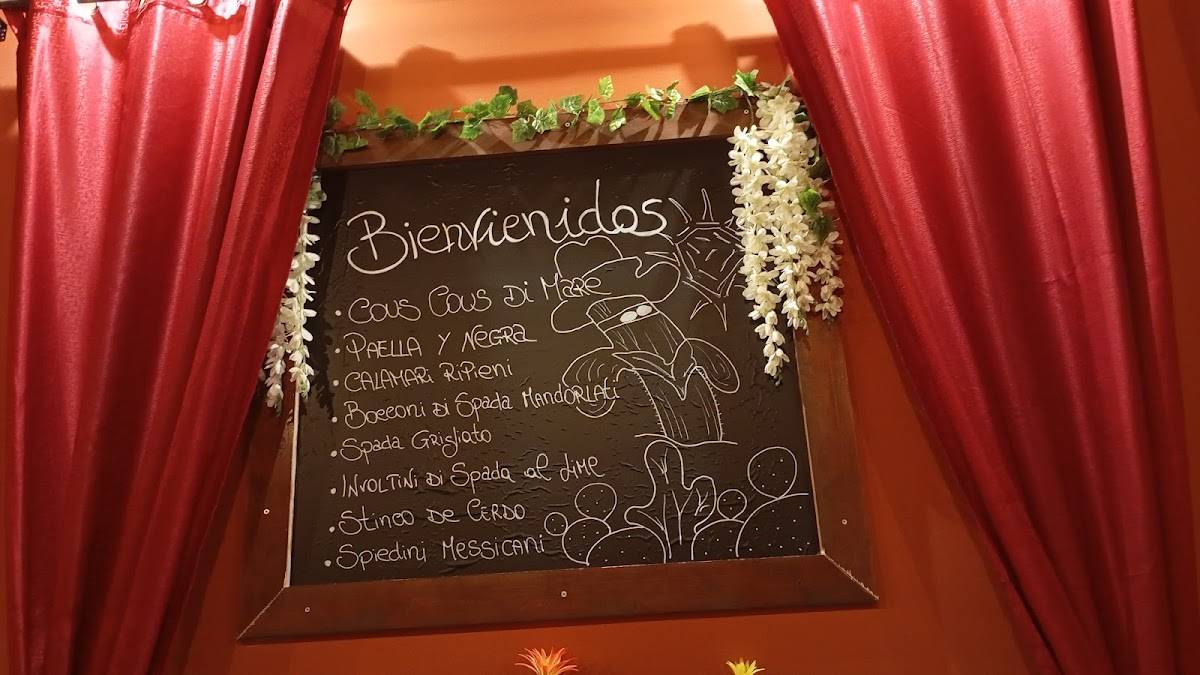 Bienvienidos
• Cous Cous Di Mare
• Paella y Negra
• Calamari Ripieni
• Bocconi di Spada Mandorlati
• Spada Grigliato
• Involtini di Spada al Lime
• Stinco de Cerdo
• Spiedini Messicani